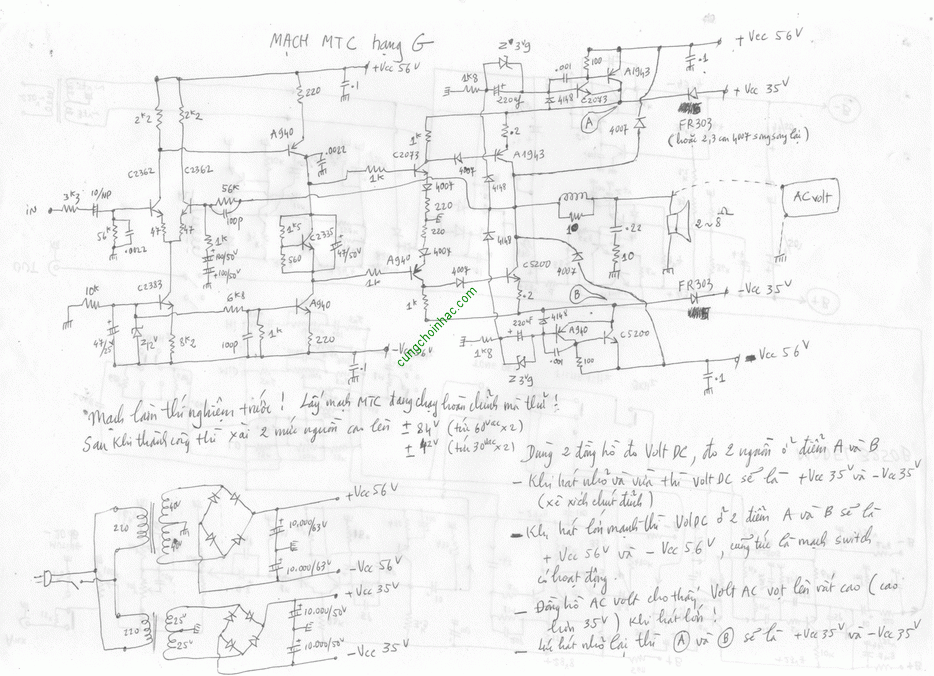 MẠCH MTC hạng G
+Vcc 56V
.1
220
2K2
2K2
A940
.0022
C2362
C2362
iN
3K3
10/NP
56K
.0022
47
47
56K
100p
1K
100/50V
100/50V
1K5
560
C2335
47/50V
1K
C2073
1K
4007
4007
220
220
4007
A940
1K
1K
4007
10K
C2383
47/25V
Z12V
8K2
6K8
100p
1K
A940
220
.1
-Vcc 56V
Z 3V9
1K8
220µ
.001
4148
100
C2073
A1943
A
+Vcc 56V
.1
+Vcc 35V
FR303
(hoặc 2,3 con 4007 song song lại)
4007
.2
A1943
4148
4148
10
.22
10
2~8Ω
AC volt
C5200
.2
4007
B
FR303
-Vcc 35V
1K8
220µ
4148
A940
.001
100
C5200
Z 3V9
-Vcc 56V
.1
cungchoinhac.com
Mạch làm thí nghiệm trước! Lấy mạch MTC đang chạy hoàn chỉnh mà thử!
Sau khi thành công thì xài 2 mức nguồn cao lên ± 84V (tức 60VAC x2)
± 42V (tức 30VAC x2)
Dùng 2 đồng hồ đo Volt DC, đo 2 nguồn ở điểm A và B
- Khi hát nhỏ và vừa thì volt DC sẽ là +Vcc 35V và -Vcc 35V
(xê xích chút đỉnh)
- Khi hát lớn mạnh thì Volt DC ở 2 điểm A và B sẽ là
+ Vcc 56V và - Vcc 56V, cũng tức là mạch switch
có hoạt động.
- Đồng hồ AC volt cho thấy Volt AC vọt lên rất cao (cao
hơn 35V) khi hát lớn!
- Lúc hát nhỏ lại thì A và B sẽ là +Vcc 35V và -Vcc 35V
220
40V
40V
+Vcc 56V
10.000/63V
10.000/63V
-Vcc 56V
220
25V
25V
+Vcc 35V
10.000/50V
10.000/50V
-Vcc 35V